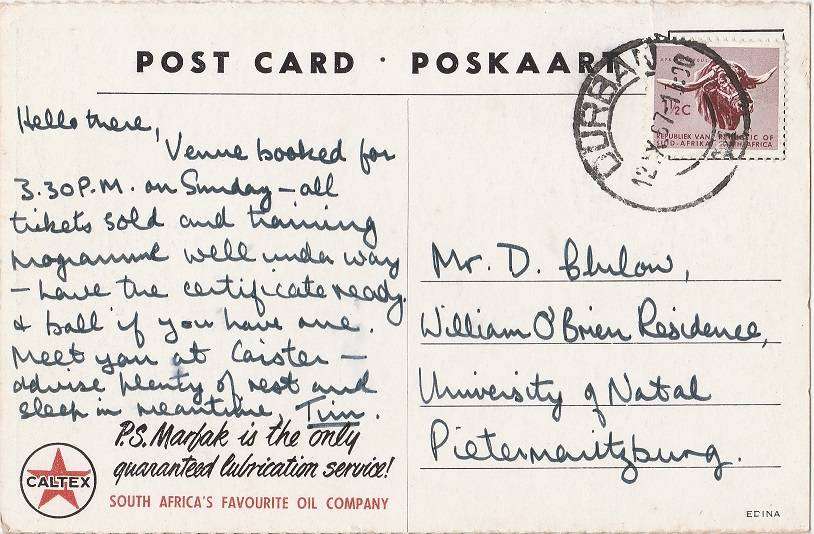 POST CARD · POSKAART
DURBAN
½C
REPUBLIEK VAN REPUBLIC OF
SUID-AFRIKA SOUTH AFRICA
Hello there,
Venue booked for
3.30 P.M. on Sunday – all
tickets sold and training
programme well under way
– have the certificate ready.
& ball if you have one.
Meet you at Caister –
advise plenty of rest and
sleep in meantime, Tim.
P.S. Marfak is the only
guaranteed lubrication service!
CALTEX
SOUTH AFRICA'S FAVOURITE OIL COMPANY
Mr. D.
William O'Brien Residence,
University of Natal
Pietermaritzburg.
EDINA